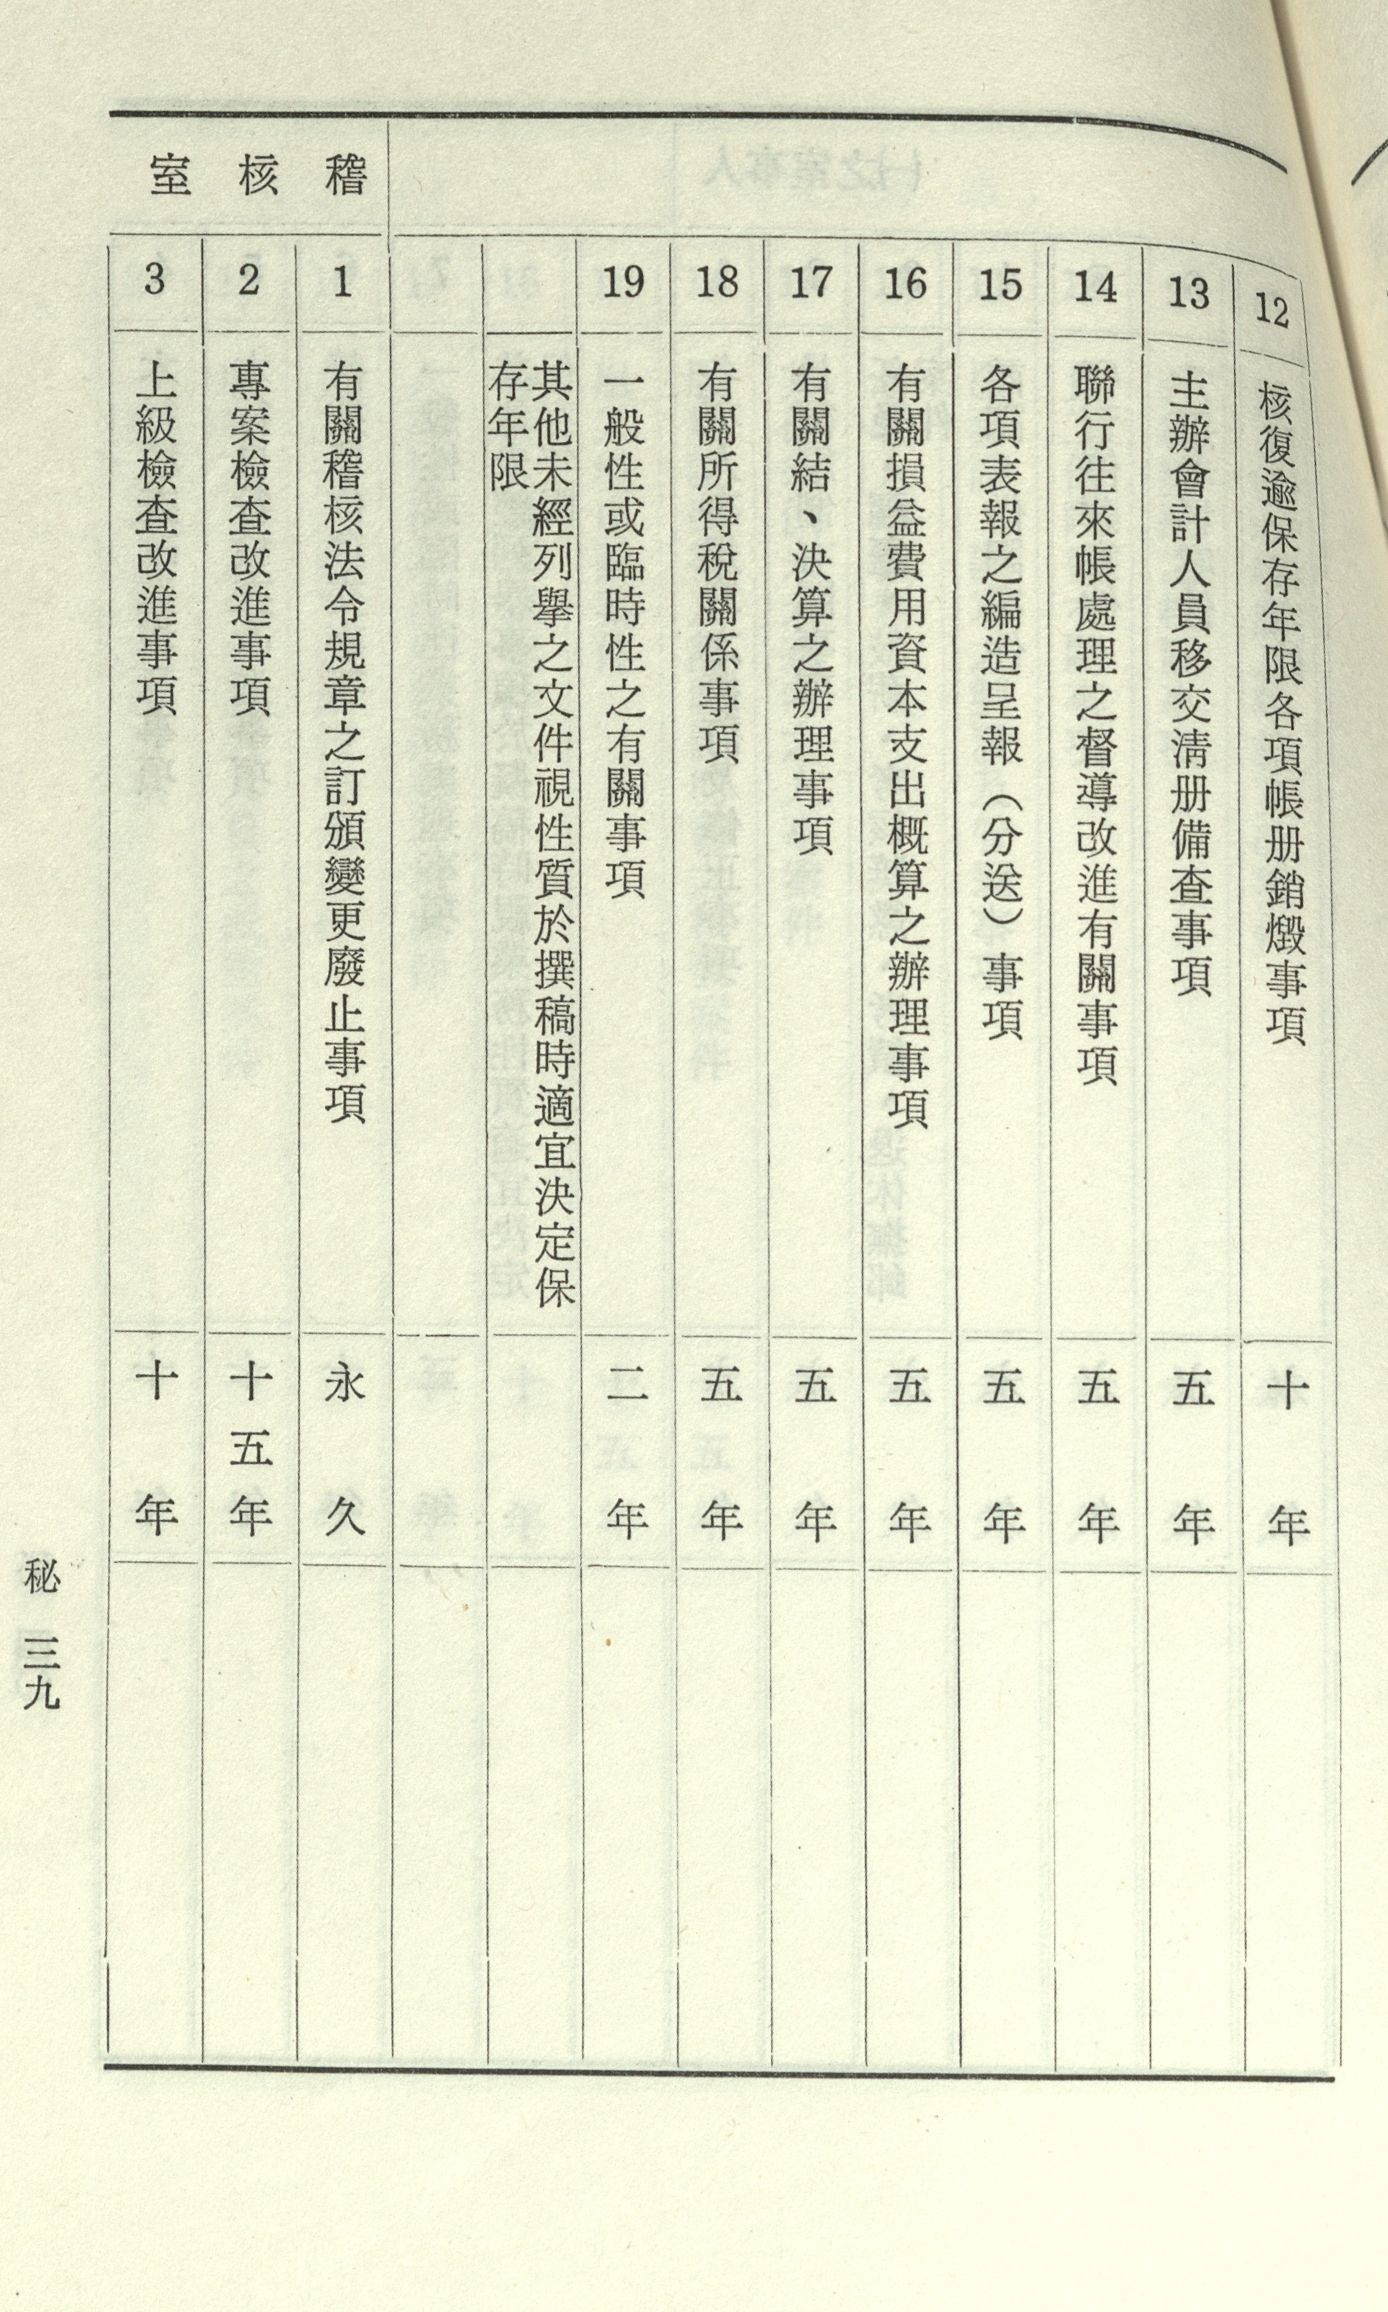 12 核復逾保存年限各項帳册銷燬事項 十年
13 主辦會計人員移交淸册備查事項 五年
14 聯行往來帳處理之督導改進有關事項 五年
15 各項表報之編造呈報（分送）事項 五年
16 有關損益費用資本支出概算之辦理事項 五年
17 有關結、決算之辦理事項 五年
18 有關所得稅關係事項 五年
19 一般性或臨時性之有關事項 二年
其他未經列舉之文件視性質於撰稿時適宜決定保
存年限
稽核室
1 有關稽核法令規章之訂頒變更廢止事項 永久
2 專案檢查改進事項 十五年
3 上級檢查改進事項 十年
秘 三九